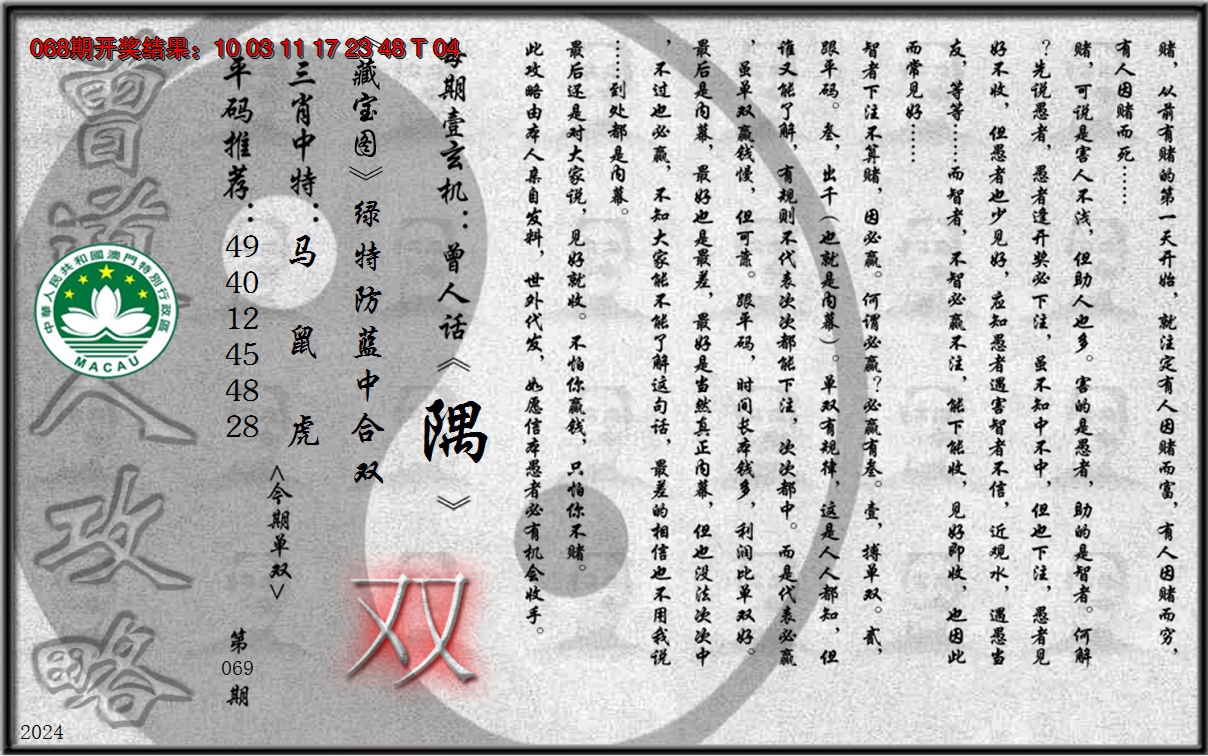 068期开奖结果：10 03 11 17 23 48 T 04
赌，从前有赌的第一天开始，就注定有人因赌而富，有人因赌而穷，
有人因赌而死……
赌，可说是害人不浅，但助人也多。害的是愚者，助的是智者。何解
？先说愚者，愚者逢开奖必下注，虽不知中不中，但也下注，愚者见
好不收，但愚者也少见好，应知愚者遇害智者不信，近观水，遇愚当
友，等等……而智者，不智必赢不注，能下能收，见好即收，也因此
而常见好……
智者下注不算赌，因必赢。何谓必赢？必赢有叁。壹，搏单双。贰，
跟平码。叁，出千（也就是内幕）。单双有规律，这是人人都知，但
谁又能了解，有规则不代表次次都能下注，次次都中。而是代表必赢
，虽单双赢钱慢，但可靠。跟平码，时间长本钱多，利润比单双好。
最后是内幕，最好也是最差，最好是当然真正内幕，但也没法次次中
，不过也必赢，不知大家能不能了解这句话，最差的相信也不用我说
……到处都是内幕。
最后还是对大家说，见好就收。不怕你赢钱，只怕你不赌。
此攻略由本人亲自发料，世外代发，如愿信本愚者必有机会收手。
每期壹玄机：曾人话《隅》
《藏宝图》绿特防蓝中合双
双
三肖中特：马 鼠 虎
<今期单双>
平码推荐：49 40 12 45 48 28
第069期
曾道人攻略
中華人民共和國澳門特別行政區
MACAU
2024